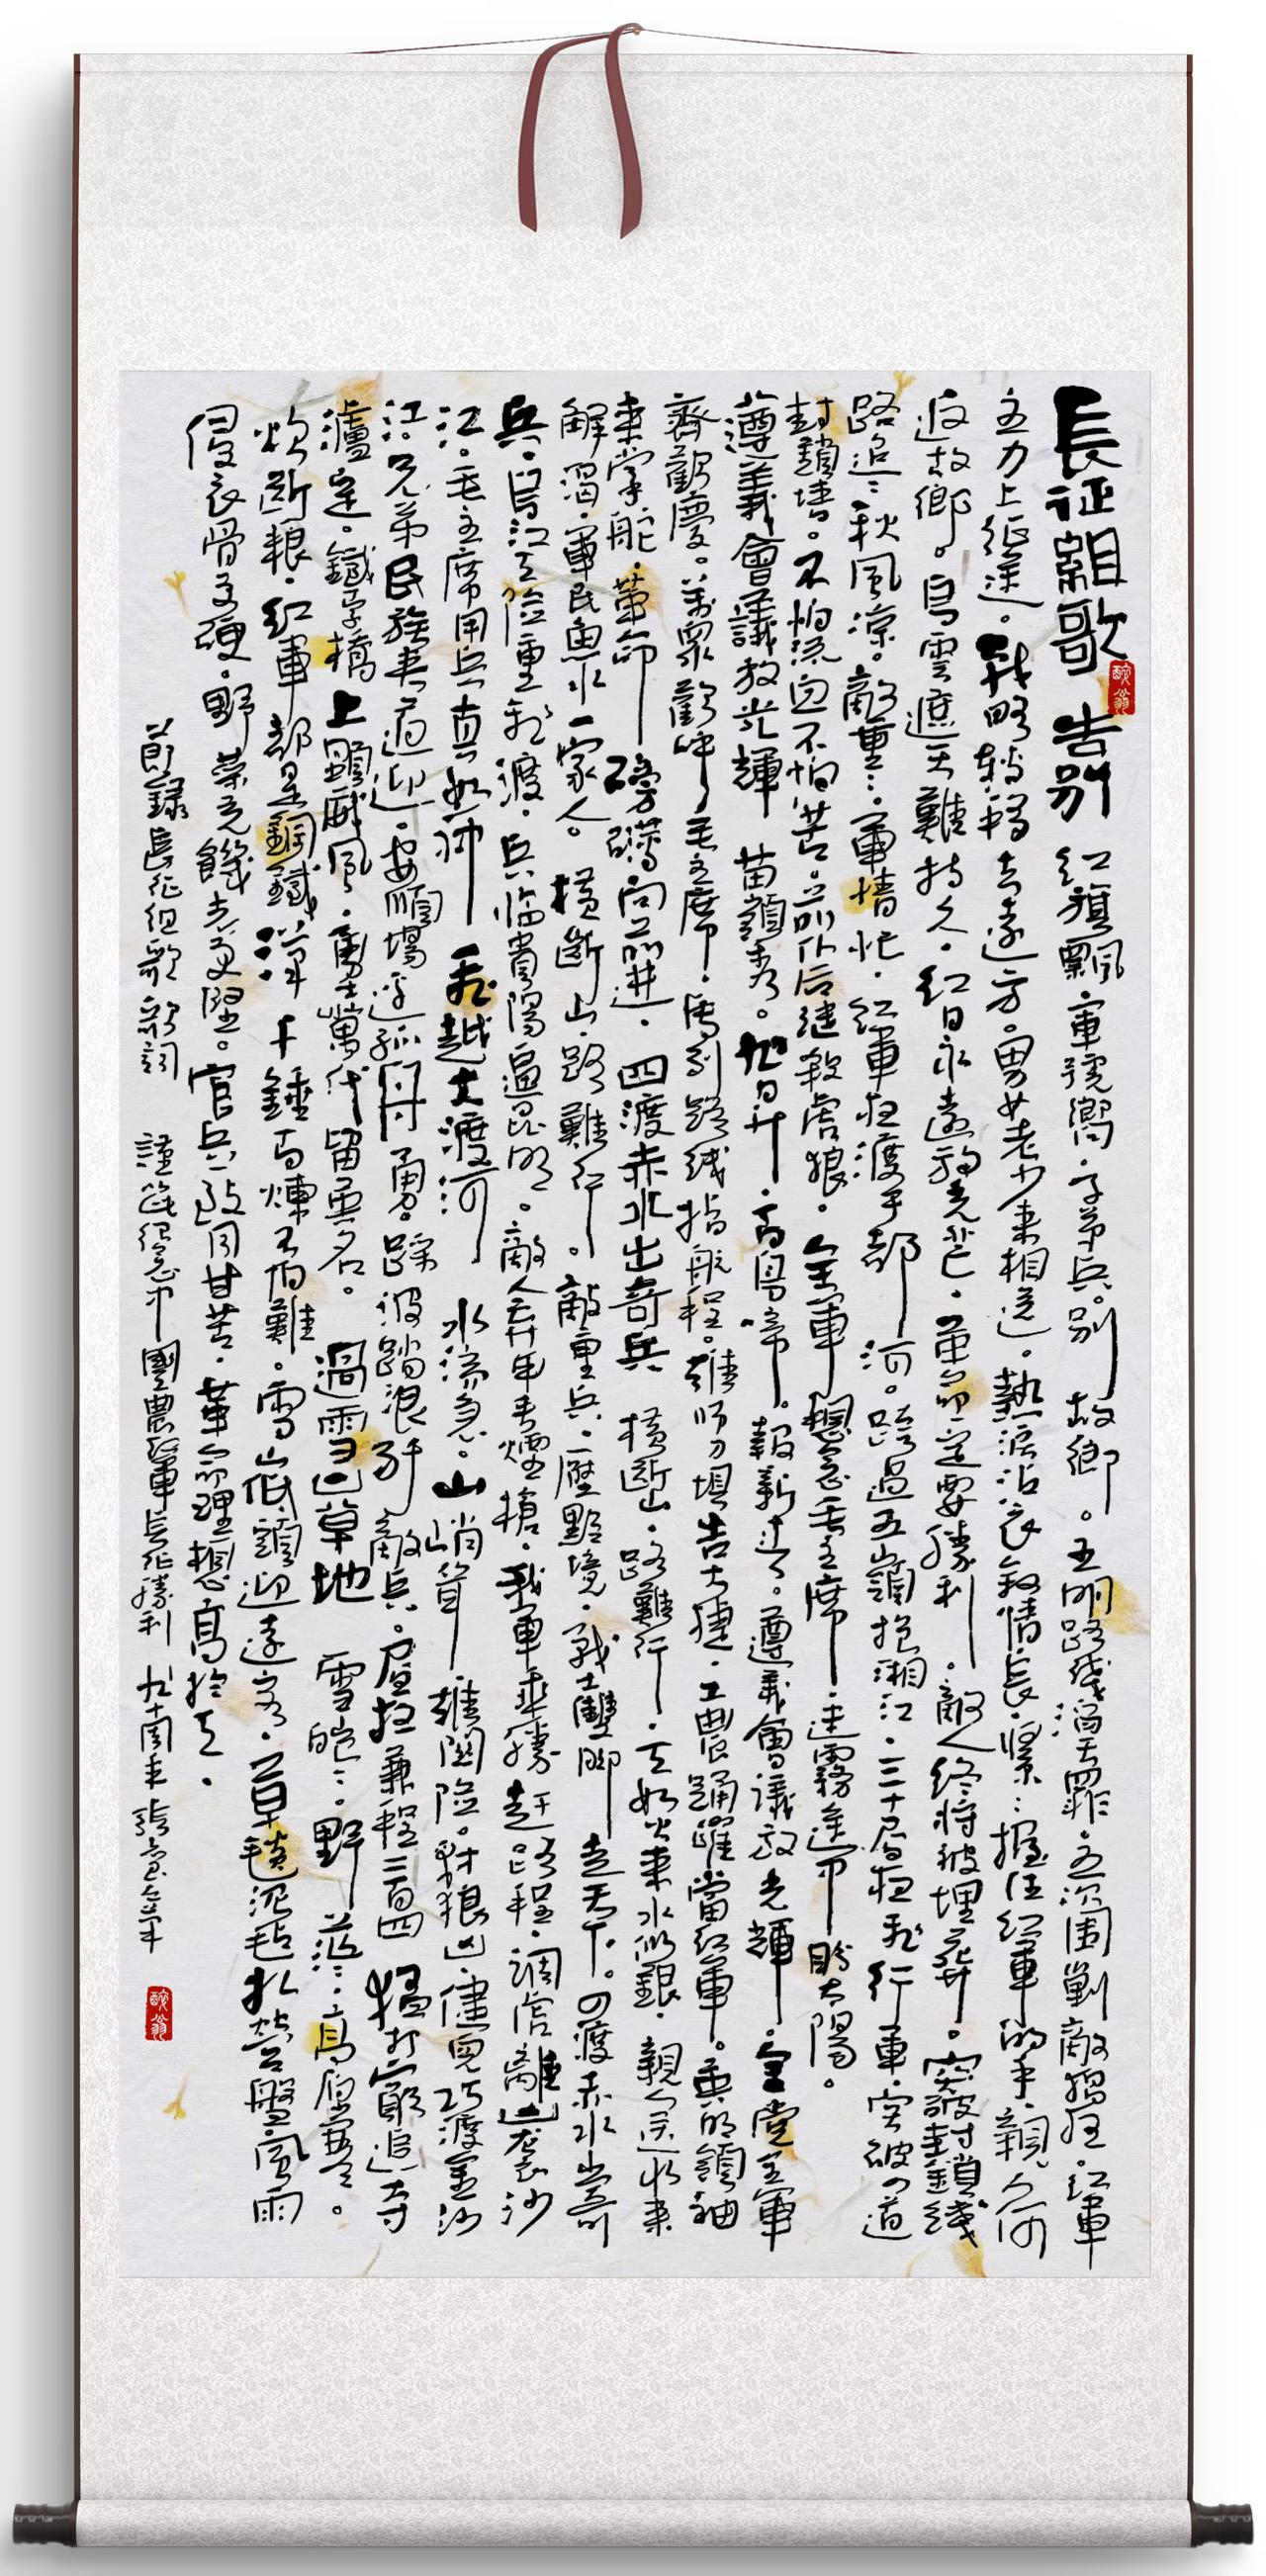 長征組歌 告别 红旗飄軍號響子弟兵别故鄉。王明路线滔天罪五次围剿敵猖狂紅軍
主力上征途。戰略轉移去遠方。男女老少来相送。熱淚沾衣叙情長。緊緊握住红軍的手親人何時
返故鄉。烏雲遮天難持久。红日永遠放光芒。革命一定要勝利。敵人终将被埋葬。突破封鎖线
路迢迢秋風凉。敵重重軍情忙。红軍夜渡于都河。跨過五嶺抢湘江。三十昼夜飛行軍突破四道
封鎖墙。不怕流血不怕苦。前仆后继殺虎狼。全軍想念毛主席迷霧途中盼太陽。
遵義會議放光輝 苗嶺秀。旭日升。百鳥啼。報新春。遵義會議放光輝。全党全軍
齊歡慶。萬衆歡呼毛主席。馬列路线指航程。雄師刀壩告大捷。工農踊躍當红軍。英明領袖
来掌舵。革命磅礴向前進。四渡赤水出奇兵 横断山路難行。天如火来水似銀。親人送水来
解渴。軍民魚水一家人。横斷山路難行。敵重兵壓黔境。戰士雙脚走天下。四渡赤水出奇
兵。烏江天险重飛渡。兵临貴陽逼昆明。敵人弃甲丢煙槍。我軍乘勝赶路程。調虎離山袭金沙
江。毛主席用兵真如神 飛越大渡河 水湍急。山峭聳雄關险。豺狼凶。健兒巧渡金沙
江。兄弟民族夹道迎。安順場邊孤舟勇。踩波踏浪歼敵兵。昼夜兼程二百四猛打窮追夺
瀘定。鐵索橋上顯威風。勇士萬代留英名。過雪山草地 雪皑皑。野茫茫。高原寒。
炊断粮。红軍都是鋼鐵漢千錘百煉不怕難。雪山低頭迎遠客。草毯泥毡扎營盤風雨
侵衣骨更硬。野菜充饑志更堅。官兵一致同甘苦。革命理想高於天。
節錄長征组歌歌詞 謹筆纪念中國工農红軍長征勝利九十周年
醉翁
醉翁